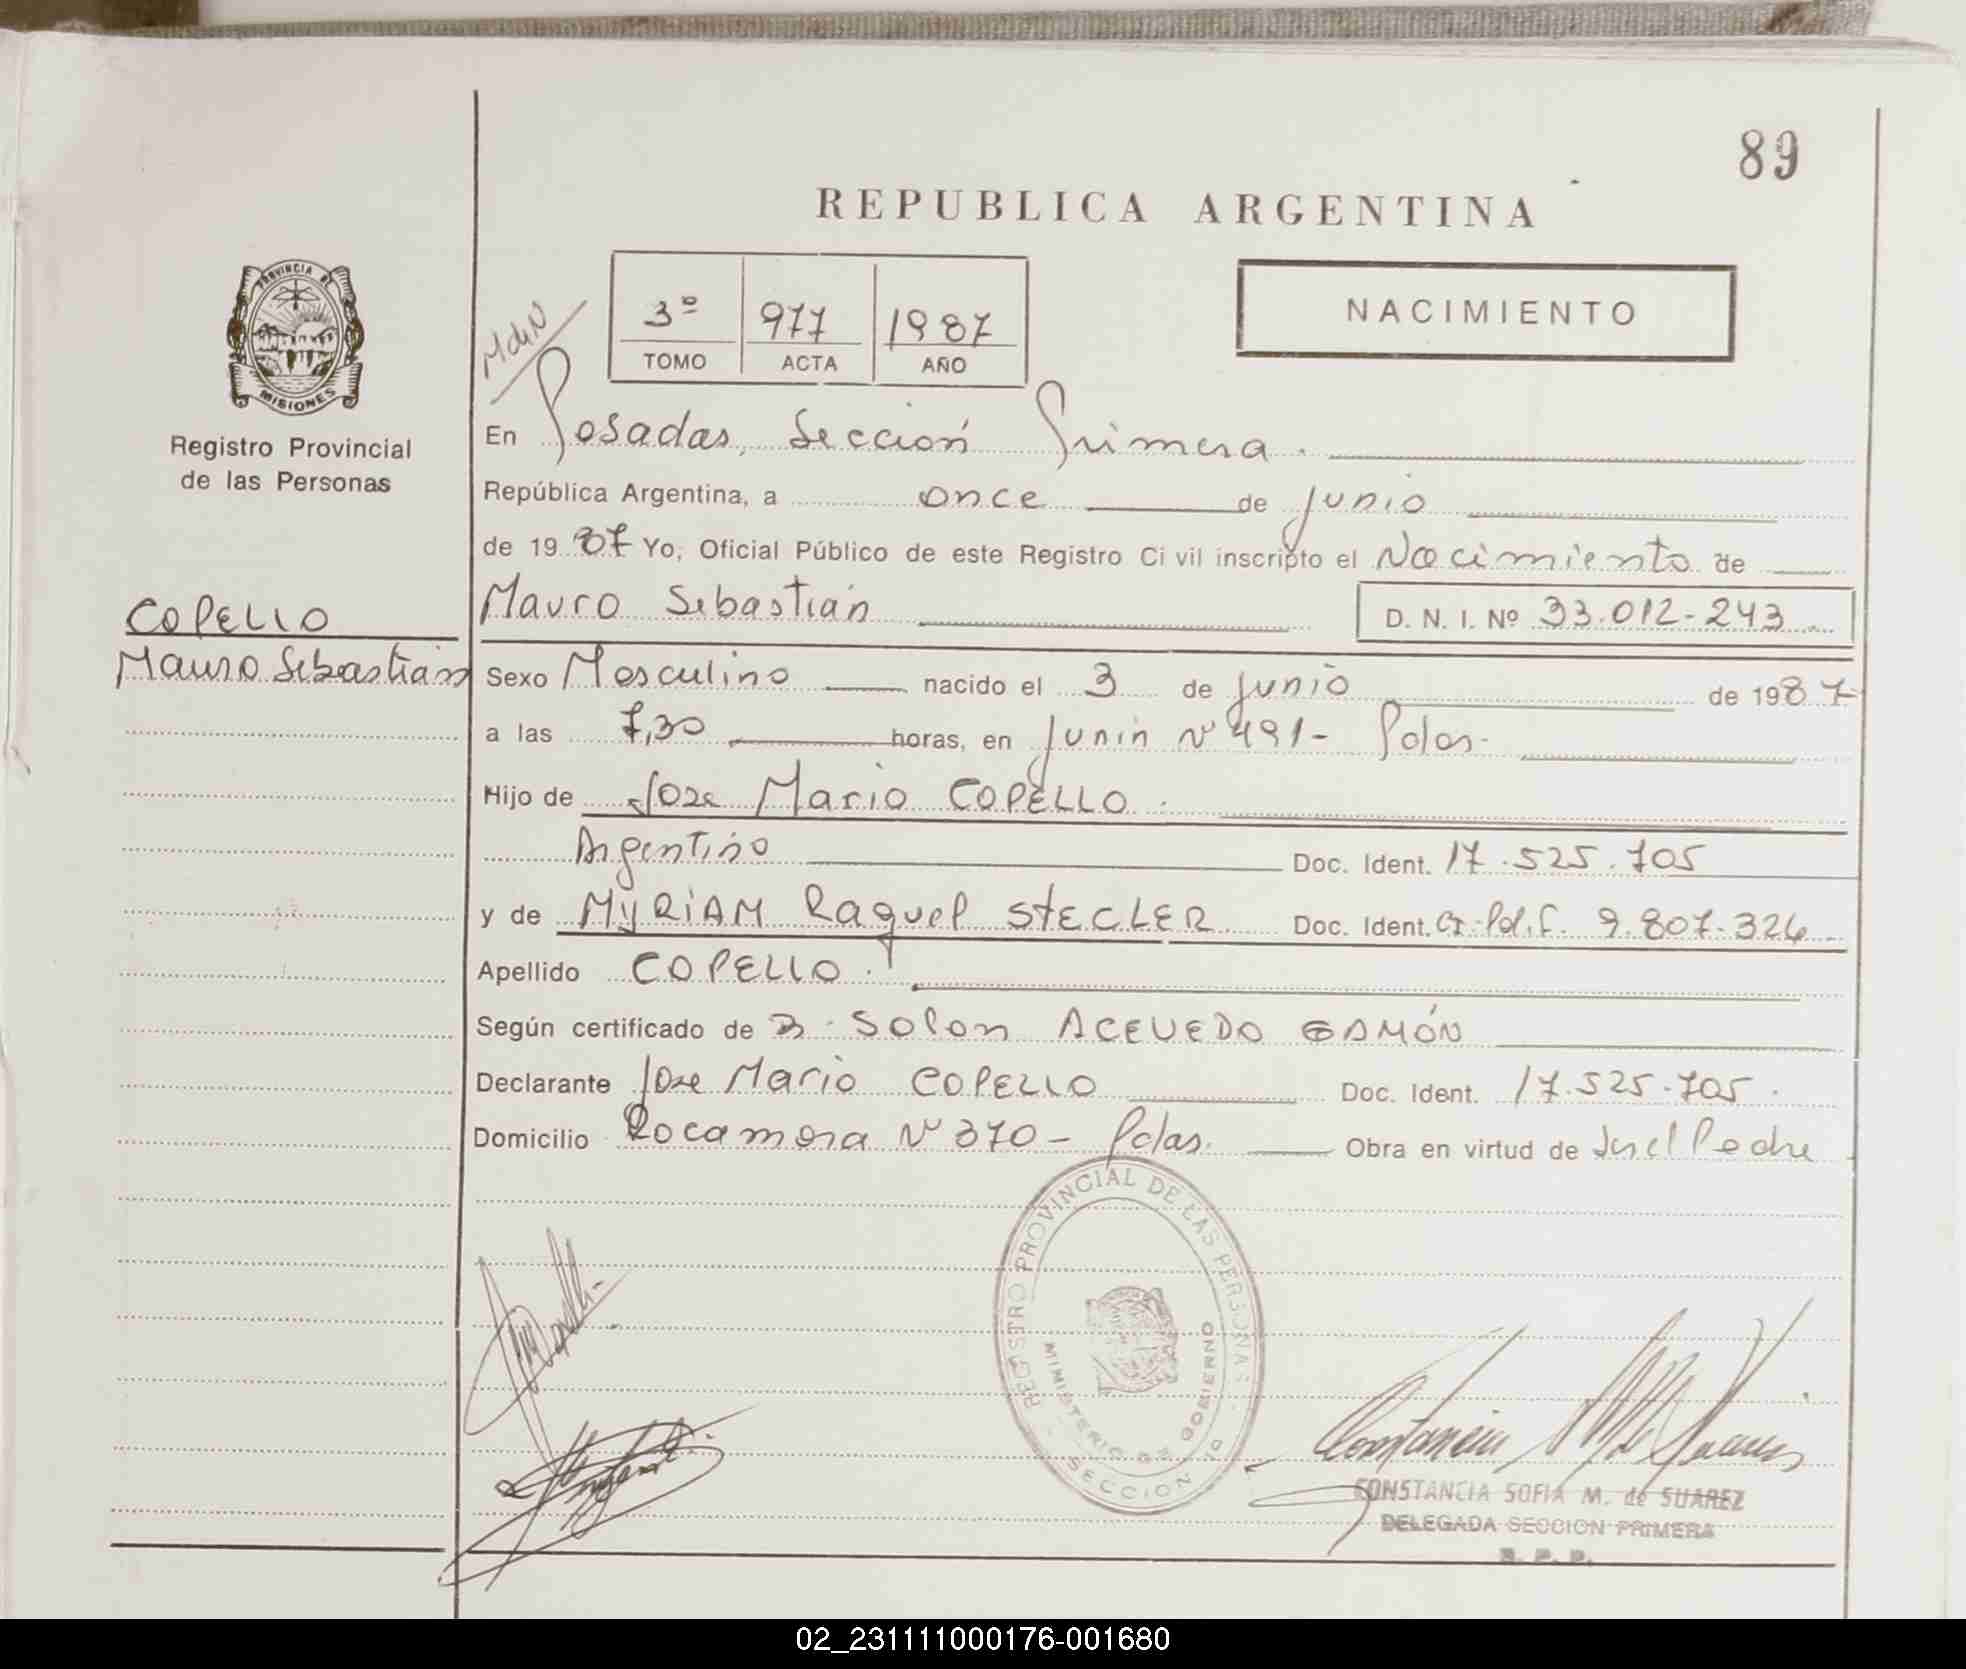 89
REPUBLICA ARGENTINA
PROVINCIA DE
MISIONES
Registro Provincial
de las Personas
MdeN
3º 977 1987
TOMO ACTA AÑO
NACIMIENTO
En Posadas, Sección Primera.
República Argentina, a once de junio
de 1987 Yo, Oficial Público de este Registro Ci vil inscripto el Nacimiento de
COPELLO
Mauro Sebastián
Mauro Sebastián D. N. I. Nº 33.012-243
Sexo Masculino nacido el 3 de junio de 1987
a las 7,30 horas, en Junin Nº 491- Pdas.
Hijo de Jose Mario COPELLO.
Argentino Doc. Ident. 17.525.705
y de MYRIAM Raquel STECLER Doc. Ident. 9.807.324
Apellido COPELLO.
Según certificado de SOLON ACEVEDO GAMÓN
Declarante Jose Mario COPELLO Doc. Ident. 17.525.705.
Domicilio Rocamora Nº 370- Pdas. Obra en virtud de del Padre
REGISTRO PROVINCIAL DE LAS PERSONAS
MINISTERIO DE GOBIERNO
SECCION
CONSTANCIA SOFIA M. de SUAREZ
DELEGADA SECCION PRIMERA
R. P. P.
02_231111000176-001680